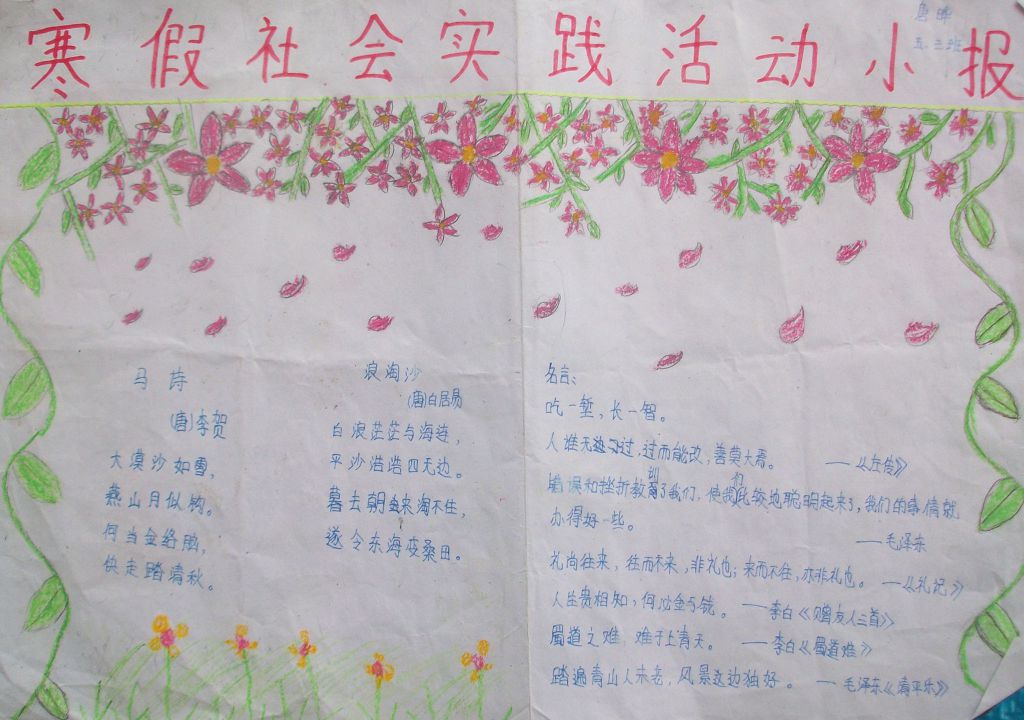 寒假社会实践活动小报
唐
五.三班
马诗
(唐)李贺
大漠沙如雪，
燕山月似钩。
何当金络脑，
快走踏清秋。
浪淘沙
(唐)白居易
白浪茫茫与海连，
平沙浩浩四无边。
暮去朝来淘不住，
遂令东海变桑田。
名言：
吃一堑，长一智。
人谁无过，过而能改，善莫大焉。 ——《左传》
错误和挫折教训了我们，使我们比较地聪明起来了，我们的事情就
办得好一些。
——毛泽东
礼尚往来，往而不来，非礼也；来而不往，亦非礼也。 ——《礼记》
人生贵相知，何必金与钱。 ——李白《赠友人三首》
蜀道之难，难于上青天。 ——李白《蜀道难》
踏遍青山人未老，风景这边独好。 —毛泽东《清平乐》